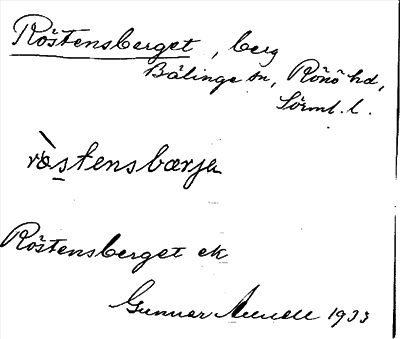 Röstensberget, berg
Bälinge sn, Rönö hd,
Sörml. l.
røstensbærjeͅt
Röstensberget ek
Gunnar 1933